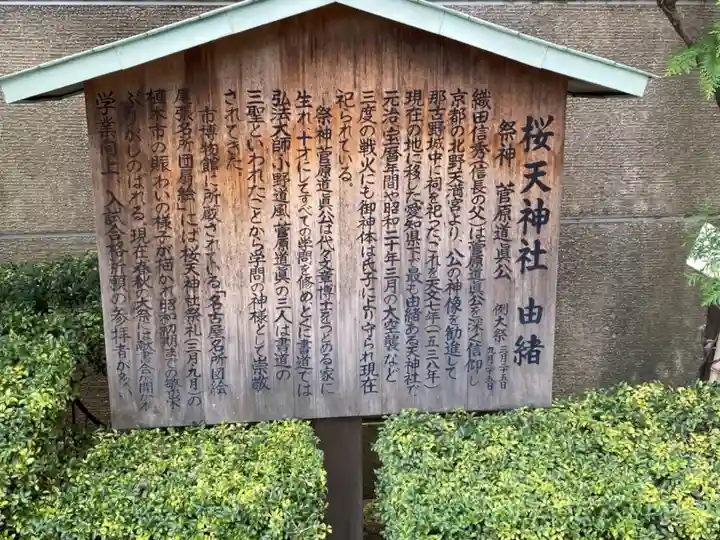 桜天神社 由緒
祭神 菅原道真公
例大祭 三月二十五日
九月二十五日
織田信秀(信長の父)は菅原道真公を深く信仰し
京都の北野天満宮より、公の神像を勧進して
那古野城中に祠を祀ったこれを天文七年(一五三八年)
現在の地に移した愛知県で最も由緒ある天神社で
元治、宝暦年間や昭和二十年三月の大空襲など
三度の戦火にも御神体は氏子により守られ現在
祀られている。
祭神菅原道真公は代々文章博士をつとめる家に
生れ十才にしてすべての学問を修め、とくに書道では
弘法大師、小野道風、菅原道真の三人は書道の
三聖といわれたことから学問の神様として崇敬
されてきた
市博物館に所蔵されている「名古屋名所図絵
尾張名所団扇絵」には桜天神社祭礼(三月九月)の
植木市の賑わいの様子が描かれ昭和初期までの繁栄
ぶりがしのばれる。現在春秋の大祭には献書会が開かれ
学業向上 入試合格祈願の参拝者が多い